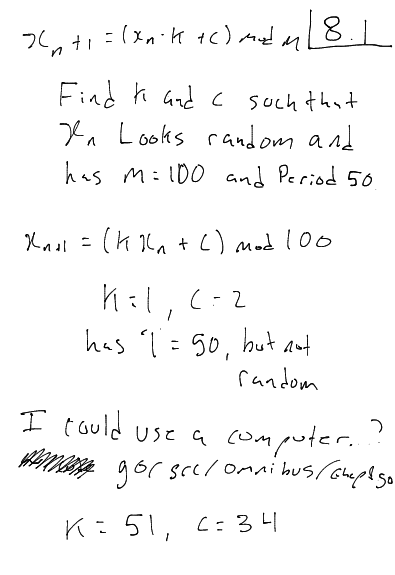 x_{n+1} = (x_n · k + c) mod m 8.1
Find k and c such that
x_n Looks random and
has m = 100 and Period 50
x_{n+1} = (k x_n + c) mod 100
k = 1, c = 2
has l = 50, but not
random
I could use a computer..?
go/src/omnibus/
k = 51, c = 34